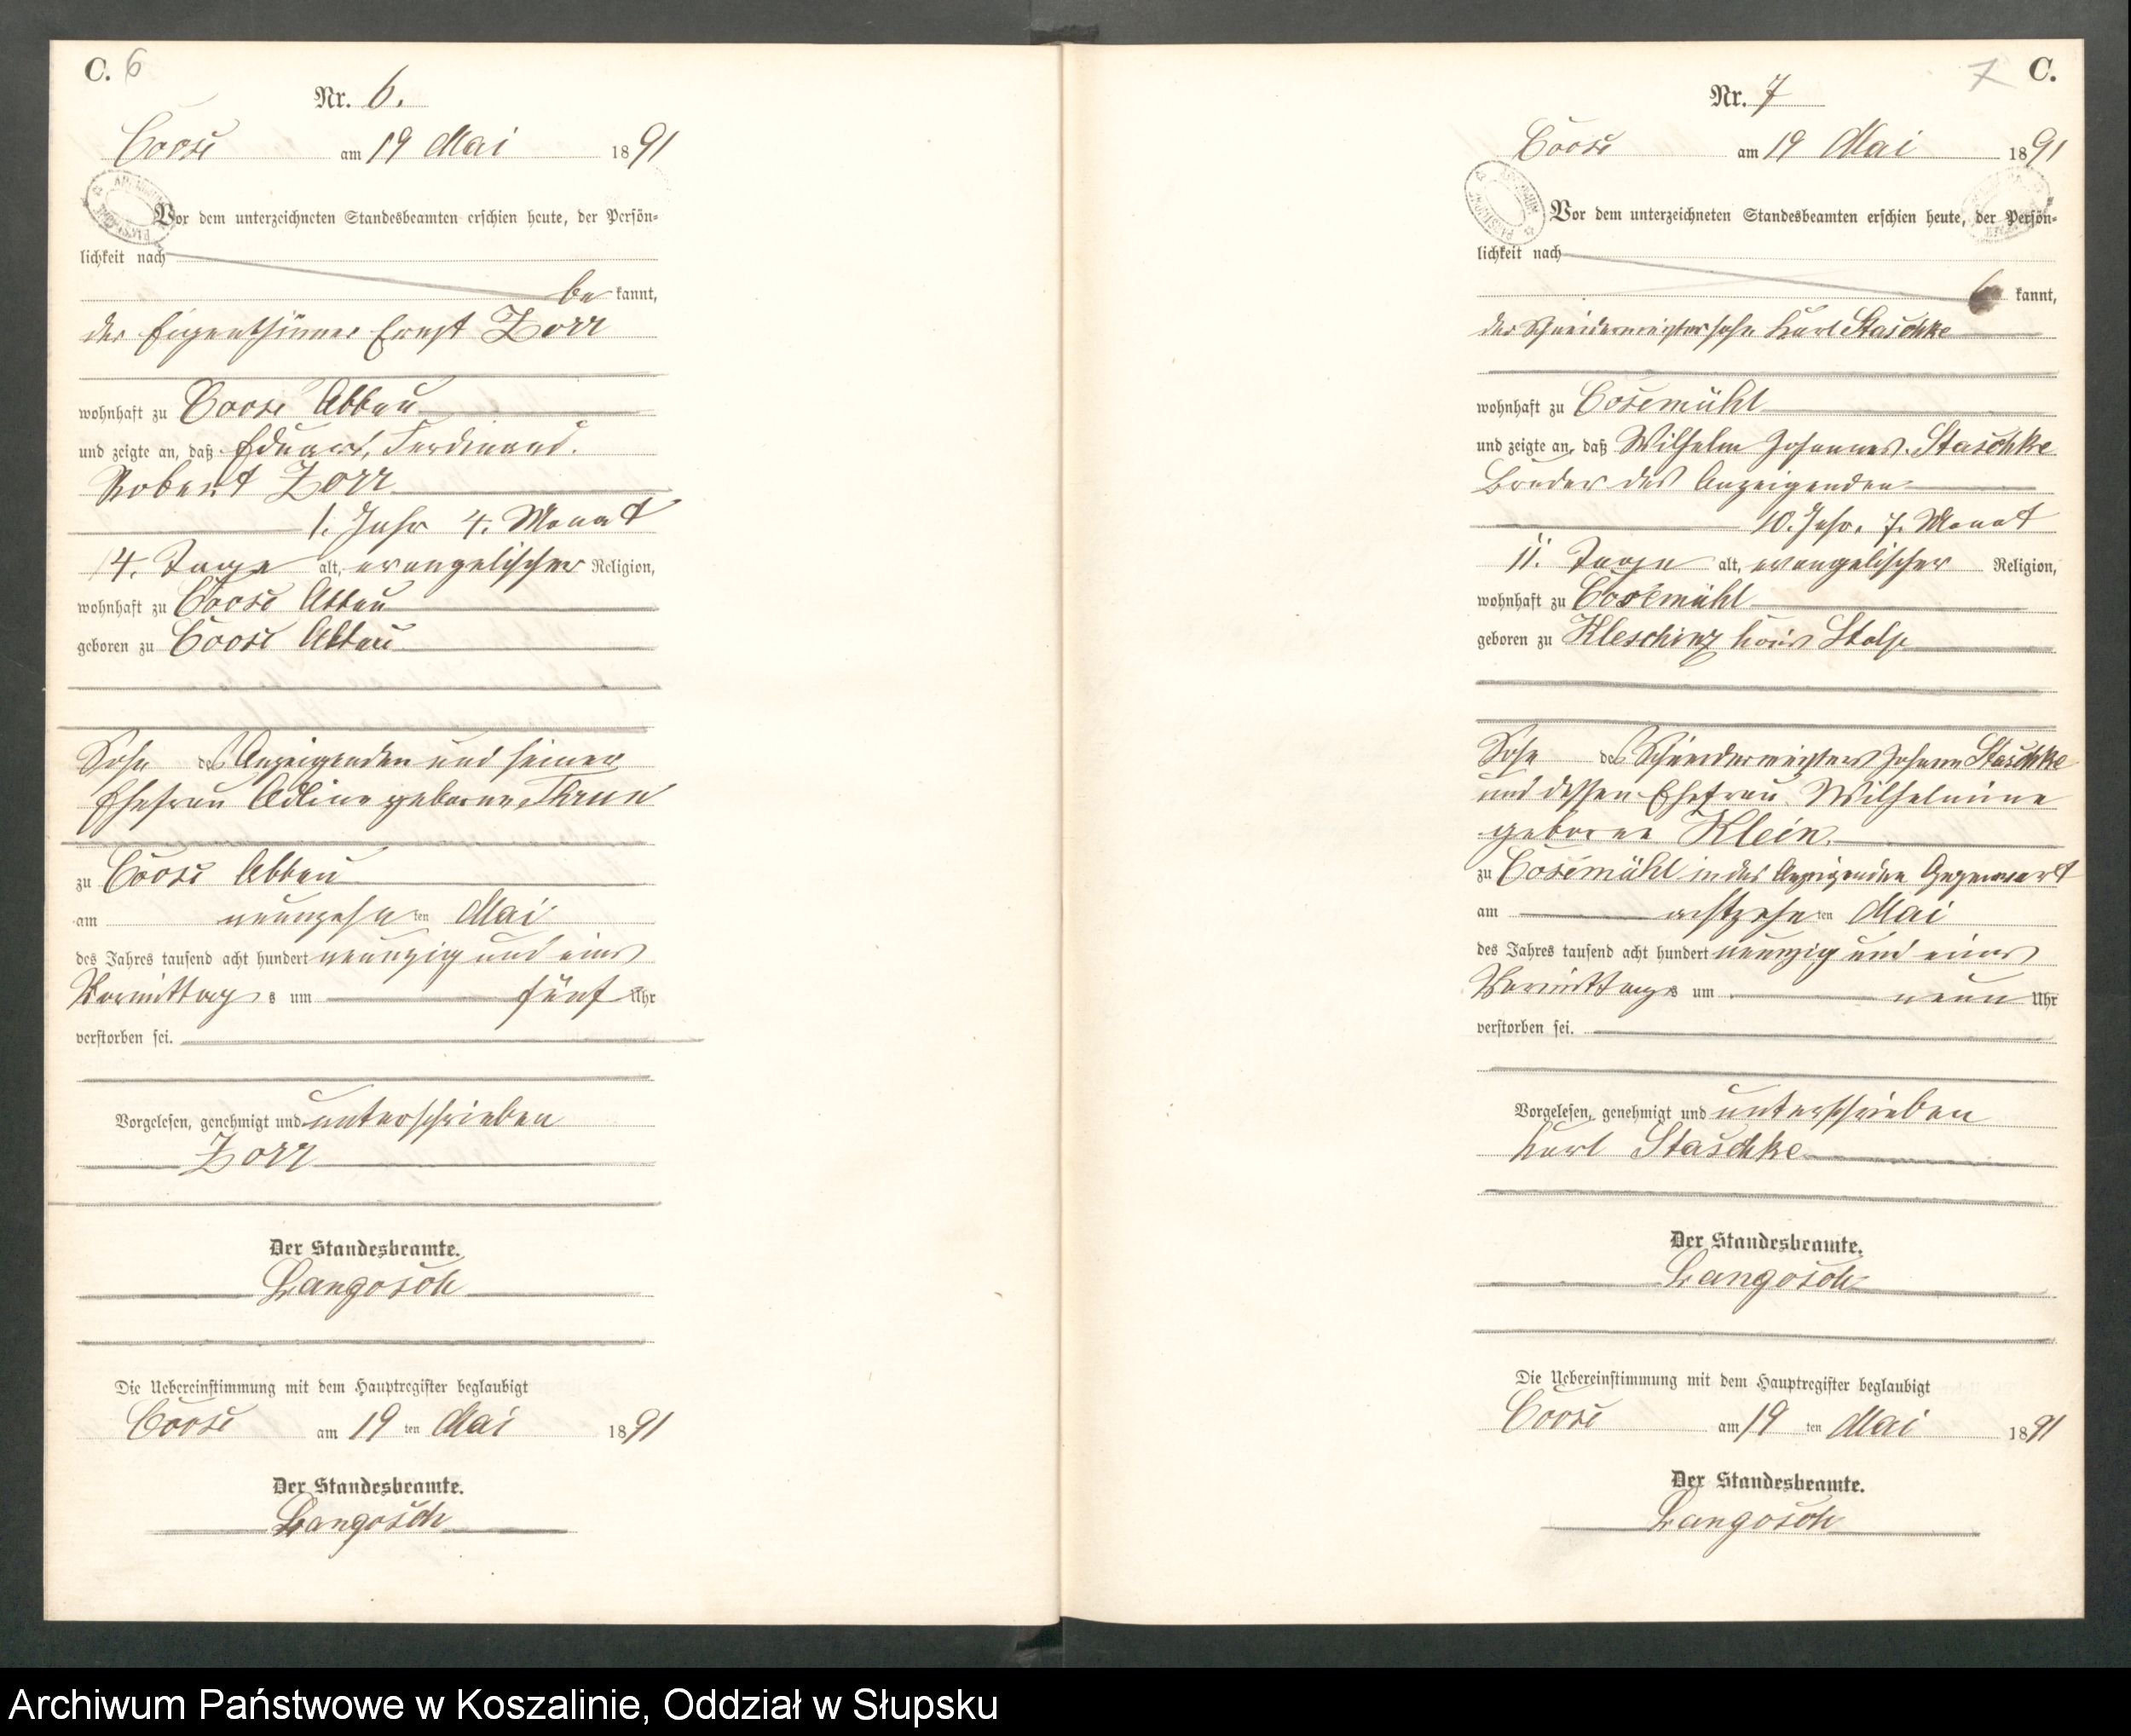 C. 6
Nr. 6.
Coose am 19 Mai 1891
Vor dem unterzeichneten Standesbeamten erschien heute, der Persön-
lichkeit nach
be kannt,
der Eigenthümer Ernst Zorr
wohnhaft zu Coose Abbau
und zeigte an, daß Eduard, Ferdinand.
Robert Zorr
1. Jahr 4. Monat
14. Tage alt, evangelischer Religion,
wohnhaft zu Coose Abbau
geboren zu Coose Abbau
Sohn des Anzeigenden und seiner
Ehefrau Adline geborne Thrun
zu Coose Abbau
am neunzehn ten Mai
des Jahres tausend acht hundert neunzig und eins
Vormittag s um fünf Uhr
verstorben sei.
Vorgelesen, genehmigt und unterschrieben
Zorr
Der Standesbeamte.
Langosch
Die Uebereinstimmung mit dem Hauptregister beglaubigt
Coose am 19 ten Mai 1891
Der Standesbeamte.
Langosch
7 C.
Nr. 7
Coose am 19 Mai 1891
Vor dem unterzeichneten Standesbeamten erschien heute, der Persön-
lichkeit nach
kannt,
der Schneidermeistersohn Karl Staschke
wohnhaft zu Cosemühl
und zeigte an, daß Wilhelm Johannes Staschke
Bruder des Anzeigenden
10. Jahr, 7. Monat
11. Tage alt, evangelischer Religion,
wohnhaft zu Cosemühl
geboren zu Kleschinz Kreis Stolp
Sohn des Schneidermeisters Johann Staschke
und dessen Ehefrau Wilhelmine
geborne Klein.
zu Cosemühl in des Anzeigenden Gegenwart
am achtzehn ten Mai
des Jahres tausend acht hundert neunzig und eins
Vormittags um neun Uhr
verstorben sei.
Vorgelesen, genehmigt und unterschrieben
Karl Staschke
Der Standesbeamte.
Langosch
Die Uebereinstimmung mit dem Hauptregister beglaubigt
Coose am 19 ten Mai 1891
Der Standesbeamte.
Langosch
Archiwum Państwowe w Koszalinie, Oddział w Słupsku